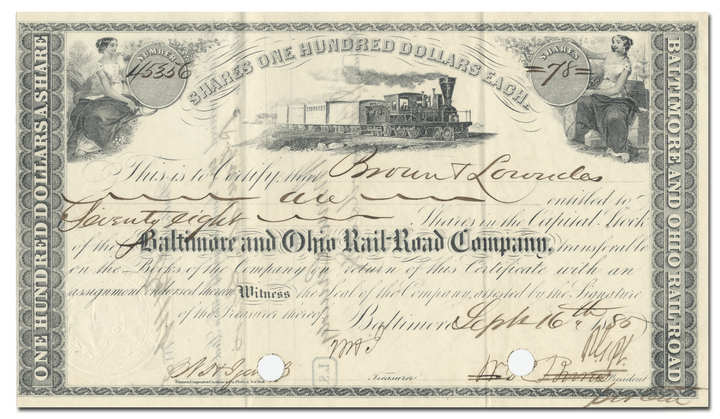 ONE HUNDRED DOLLARS A SHARE
NUMBER
45356
SHARES ONE HUNDRED DOLLARS EACH.
SHARES
78
BALTIMORE AND OHIO RAIL-ROAD
This is to Certify, that Brown & Lowndes
are entitled to
Seventy eight Shares in the Capital Stock
of the Baltimore and Ohio Rail-Road Company, transferable
on the Books of the Company on return of this Certificate with an
assignment endorsed hereon Witness the Seal of the Company, attested by the Signature
of the Treasurer hereof
Baltimore Sept 16th 1885
Treasurer
President